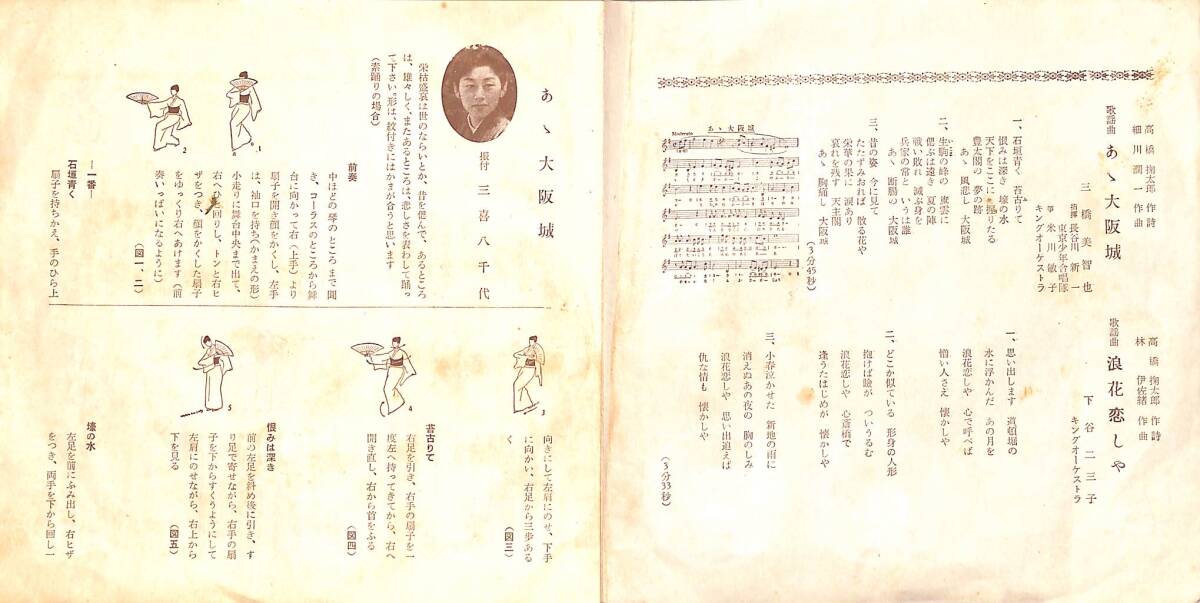 高橋掬太郎 作詩
細川潤一 作曲
歌謡曲 あゝ大阪城
三橋美智也
指揮 長谷川新一
東京少年合唱隊
箏 米川敏子
キングオーケストラ
一、石垣青く 苔古りて
恨みは深き 壕の水
天下をここに 握りたる
豊太閤の 夢の跡
あゝ 風悲し 大阪城
二、生駒の峰の 旗雲に
偲ぶは遠き 夏の陣
戦い敗れ 滅ぶ身を
兵家の常と いうは誰
あゝ 断腸の 大阪城
三、昔の姿 今に見て
たたずみおれば 散る花や
栄華の果に 涙あり
哀れを残す 天主閣
あゝ 胸痛し 大阪城
(3分45秒)
あゝ大阪城
Moderato
高橋掬太郎 作詩
林伊佐緒 作曲
歌謡曲 浪花恋しや
下谷二三子
キングオーケストラ
一、思い出します 道頓堀の
水に浮かんだ あの月を
浪花恋しや 心で呼べば
憎い人さえ 懐かしや
二、どこか似ている 形身の人形
抱けば瞼が ついうるむ
浪花恋しや 心斎橋で
逢うたはじめが 懐かしや
三、小春泣かせた 新地の雨に
消えぬあの夜の 胸のしみ
浪花恋しや 思い出追えば
仇な情も 懐かしや
(3分33秒)
あゝ大阪城
振付 三喜八千代
栄枯盛哀は世のならいとか、昔を偲んで、あるところ
は、雄々しく、またあるところは、悲しさを表わして踊っ
て下さい。形は、紋付きにはかまが合うと思います
(素踊りの場合)
前奏
中ほどの琴のところまで聞
き、コーラスのところから舞
台に向かって右(上手)より
扇子を開き顔をかくし、左手
は、袖口を持ち(かまえの形)
小走りに舞台中央まで出て、
右へひと回りし、トンと右ヒ
ザをつき、顔をかくした扇子
をゆっくり右へあけます(前
奏いっぱいになるように)
(図一、二)
1
2
―一番―
石垣青く
扇子を持ちかえ、手のひら上
向きにして左肩にのせ、下手
に向かい、右足から三歩ある
く
(図三)
3
苔古りて
右足を引き、右手の扇子を一
度左へ持ってきてから、右へ
開き直し、右から首をふる
(図四)
4
恨みは深き
前の左足を斜め後に引き、す
り足で寄せながら、右手の扇
子を下からすくうようにして
左肩にのせながら、右上から
下を見る
(図五)
5
壕の水
左足を前にふみ出し、右ヒザ
をつき、両手を下から回し一